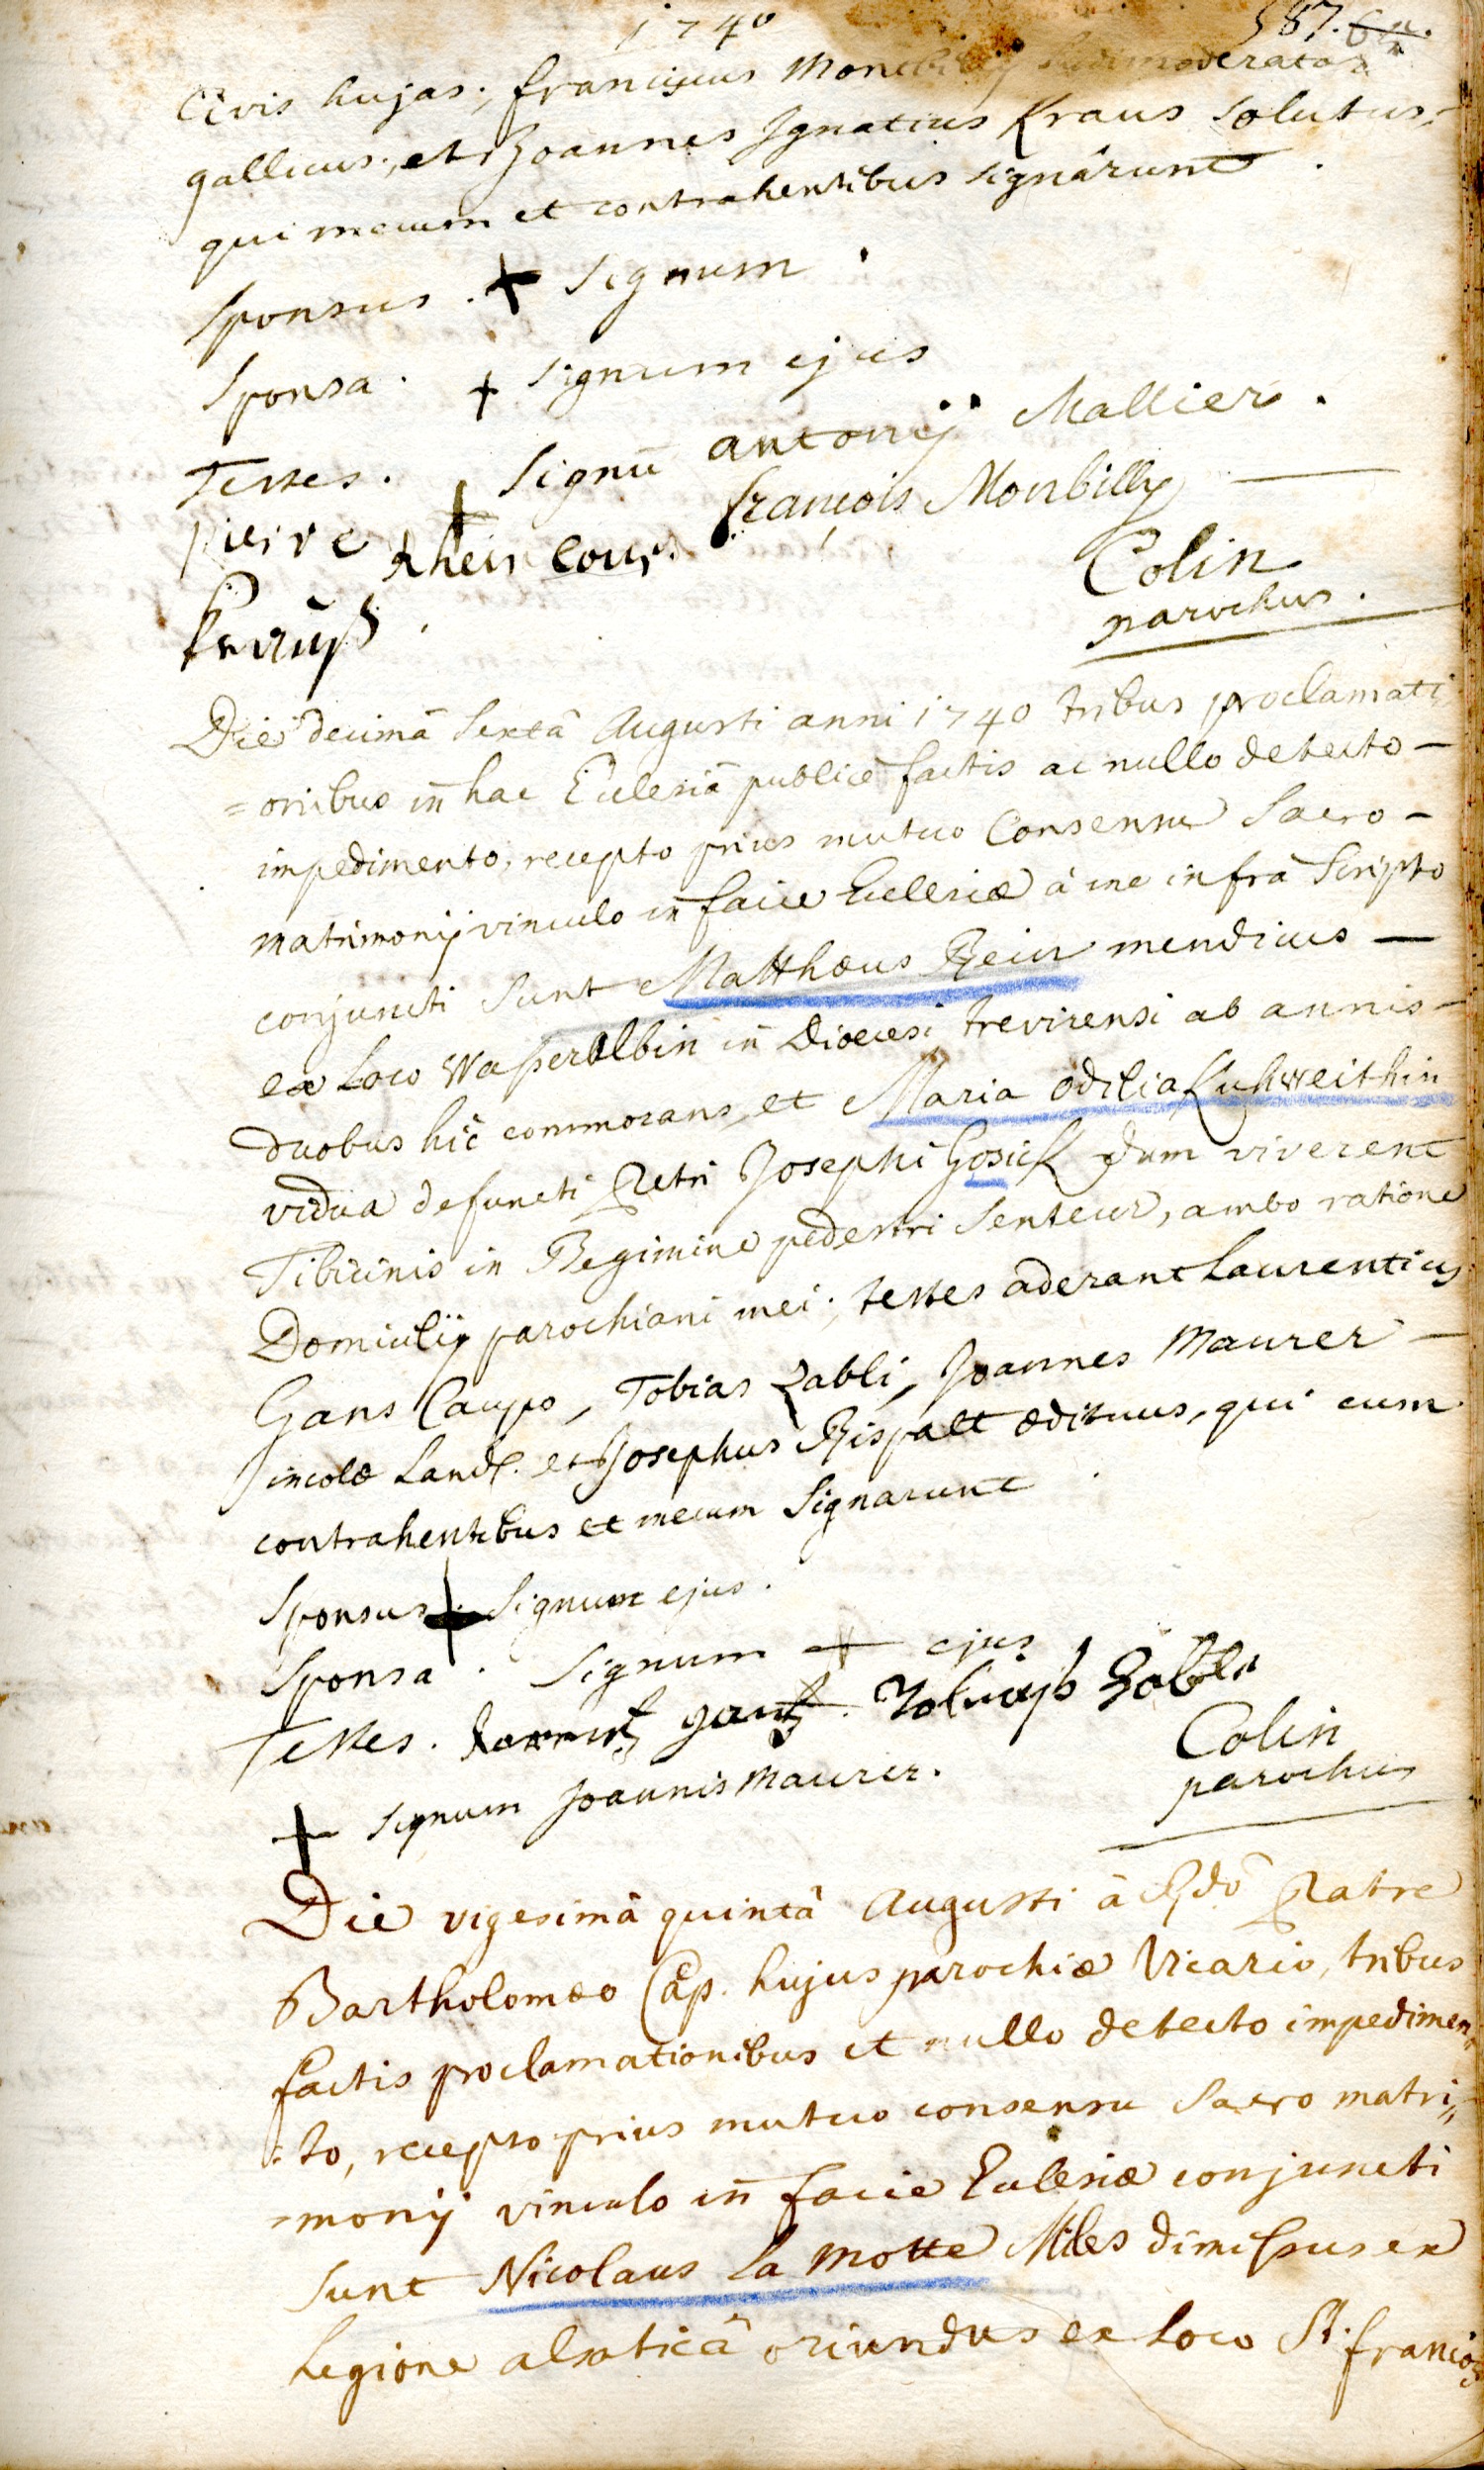 1740
587.
Civis hujas; franciscus Monebilij ludimoderator
gallicus; et Joannes Ignatius Kraus solutus;
qui mecum et contrahentibus signârunt.
Sponsus. + Signum.
Sponsa. + Signum ejus
Testes. + Signū antonij Mallier.
pierre françois Monbilly
Colin
parochus.
Die decimâ Sextâ Augusti anni 1740 tribus proclamati
=onibus in hac Eclesiâ publicè factis ac nullo detecto –
impedimento, recepto prius mutuo Consensu Sacro –
matrimonij vinculo in facie Eclesiæ à me infrà Scripto
conjuncti Sunt Matthæus Rein mendicus —
ex Loco Waßerallbin in Diœcesi trevirensi ab annis –
duobus hîc commorans, et Maria Odilia Kuhweithin
vidua defuncti Petri Josephi Gosick dum viverent
Tibicinis in Regimine pedestri Senteur, ambo ratione
Domicilij parochiani mei; testes aderant Laurentius
Gans Caupo, Tobias Zabli, Joannes Maurer –
incolæ Land. et Josephus Rispalt ædituus, qui cum
contrahentibus et mecum Signarunt.
Sponsus + Signum ejus.
Sponsa. Signum + ejus
Testes. gantz
+ Signum Joannis Maurer.
Colin
parochus
Die vigesimâ quintâ Augusti à Rdo. Patre
Bartholomæo Cap. hujus parochiæ Vicario, tribus
factis proclamationibus et nullo detecto impedimen
=to, recepto prius mutuo consensu Sacro matri„
=monij vinculo in facie Eclesiæ conjuncti
Sunt Nicolaus La Motte Miles dimissus ex
Legione alsaticâ oriundus ex Loco St. francois